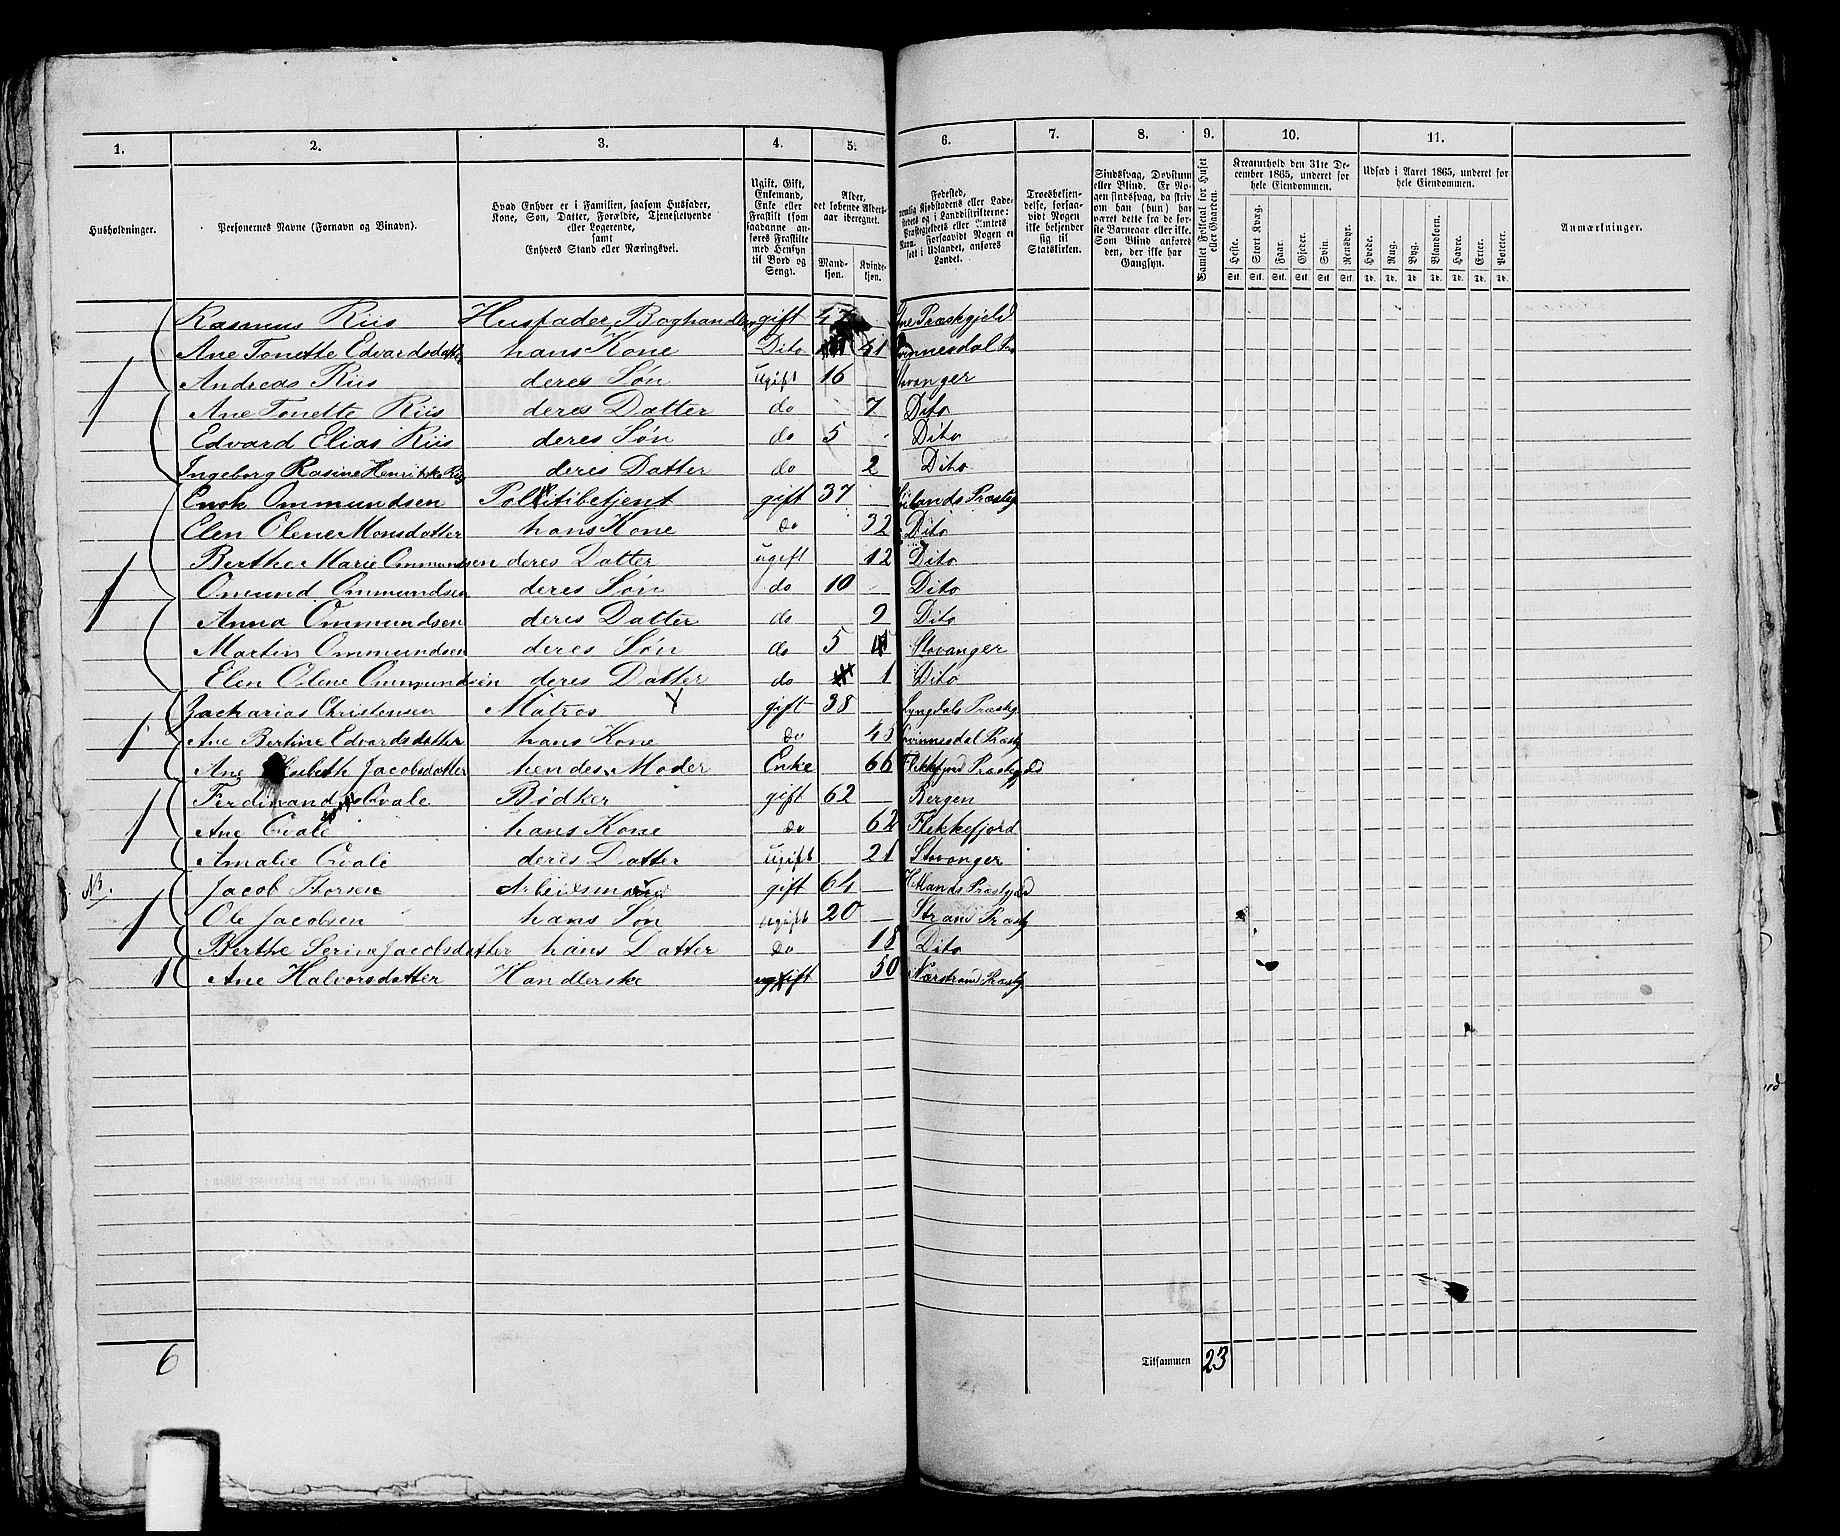 1. 2. 3. 4. 5. 6. 7. 8. 9. 10. 11.
Husholdninger.
Personernes Navne (Fornavn og Binavn).
Hvad Enhver er i Familien, saasom Husfader,
Kone, Søn, Datter, Forældre, Tjenestetyende
eller Logerende,
samt
Enhvers Stand eller Næringsvei.
Ugift, Gift,
Enkemand,
Enke eller
Fraskilt (som
saadanne an-
føres Fraskilte
med Hensyn
til Bord og
Seng).
Alder,
det løbende Alders-
aar iberegnet.
Mand-
kjøn.
Kvinde-
kjøn.
Fødested,
nemlig Kjøbstadens eller Lade-
stedets og i Landdistrikterne:
Præstegjeldets eller Amtets
Navn. Forsaavidt Nogen er
født i Udlandet, anføres
Landet.
Troesbekjen-
delse, forsaa-
vidt Nogen
ikke bekjender
sig til
Statskirken.
Sindssvag, Døvstum
eller Blind. Er No-
gen sindssvag, da skriv
om han (hun) har
været dette fra de før-
ste Barneaar eller ikke.
Som Blind anføres
den, der ikke har
Gangsyn.
Samlet Folketal for Huset
eller Gaarden.
Kreaturhold den 31te De-
cember 1865, underet for
hele Eiendommen.
Heste. Stort Kvæg. Faar. Gjeder. Svin. Rensdyr.
Stk. Stk. Stk. Stk. Stk. Stk.
Udsæd i Aaret 1865, underet for
hele Eiendommen.
Hvede. Rug. Byg. Blandkorn. Havre. Erter. Poteter.
Td. Td. Td. Td. Td. Td. Td.
Anmærkninger.
Rasmus Riis Husfader, Boghandler gift Præstgjeld
Ane Tonette Edvardsdatter hans Kone Dito 41
1 Andreas Riis deres Søn ugift 16 Stavanger
Ane Tonette Riis deres Datter do 7 Dito
Edvard Elias Riis deres Søn do 5 Dito
Ingeborg Rasine Henrikke Riis deres Datter do 2 Dito
Enok Ommundsen Politibetjent gift 37 Høilands Præstegj
Elen Olene Monsdatter hans Kone do 32 Dito
1 Berthe Marie Ommundsen deres Datter ugift 12 Dito
Omund Ommundsen deres Søn do 10 Dito
Anna Ommundsen deres Datter do 9 Dito
Martin Ommundsen deres Søn do 5 Stavanger
Elen Olene Ommundsen deres Datter do 1 Dito
Zacharias Christensen Matros gift 38 Lyngdals Præstg
1 Ane Bertine Edvardsdatter hans Kone do 48 Qvinnesdal Præstg
Ane Elisbeth Jacobsdatter hendes Moder Enke 66 Flekkefjord Præstgjæld
Ferdinand Qvale Bødker gift 62 Bergen
1 Ane Qvale hans Kone do 62 Flekkefjord
Amalie Qvale deres Datter ugift 21 Stavanger
Jacob Thorsen Arbeidsmand gift 64 Præstgjæld
1 Ole Jacobsen hans Søn ugift 20 Strand Præstg
Berthe Serine Jacobsdatter hans Datter do 18 Dito
1 Ane Halvorsdatter Handlerske ugift 50 Nærstrand Præstg
6
Tilsammen 23